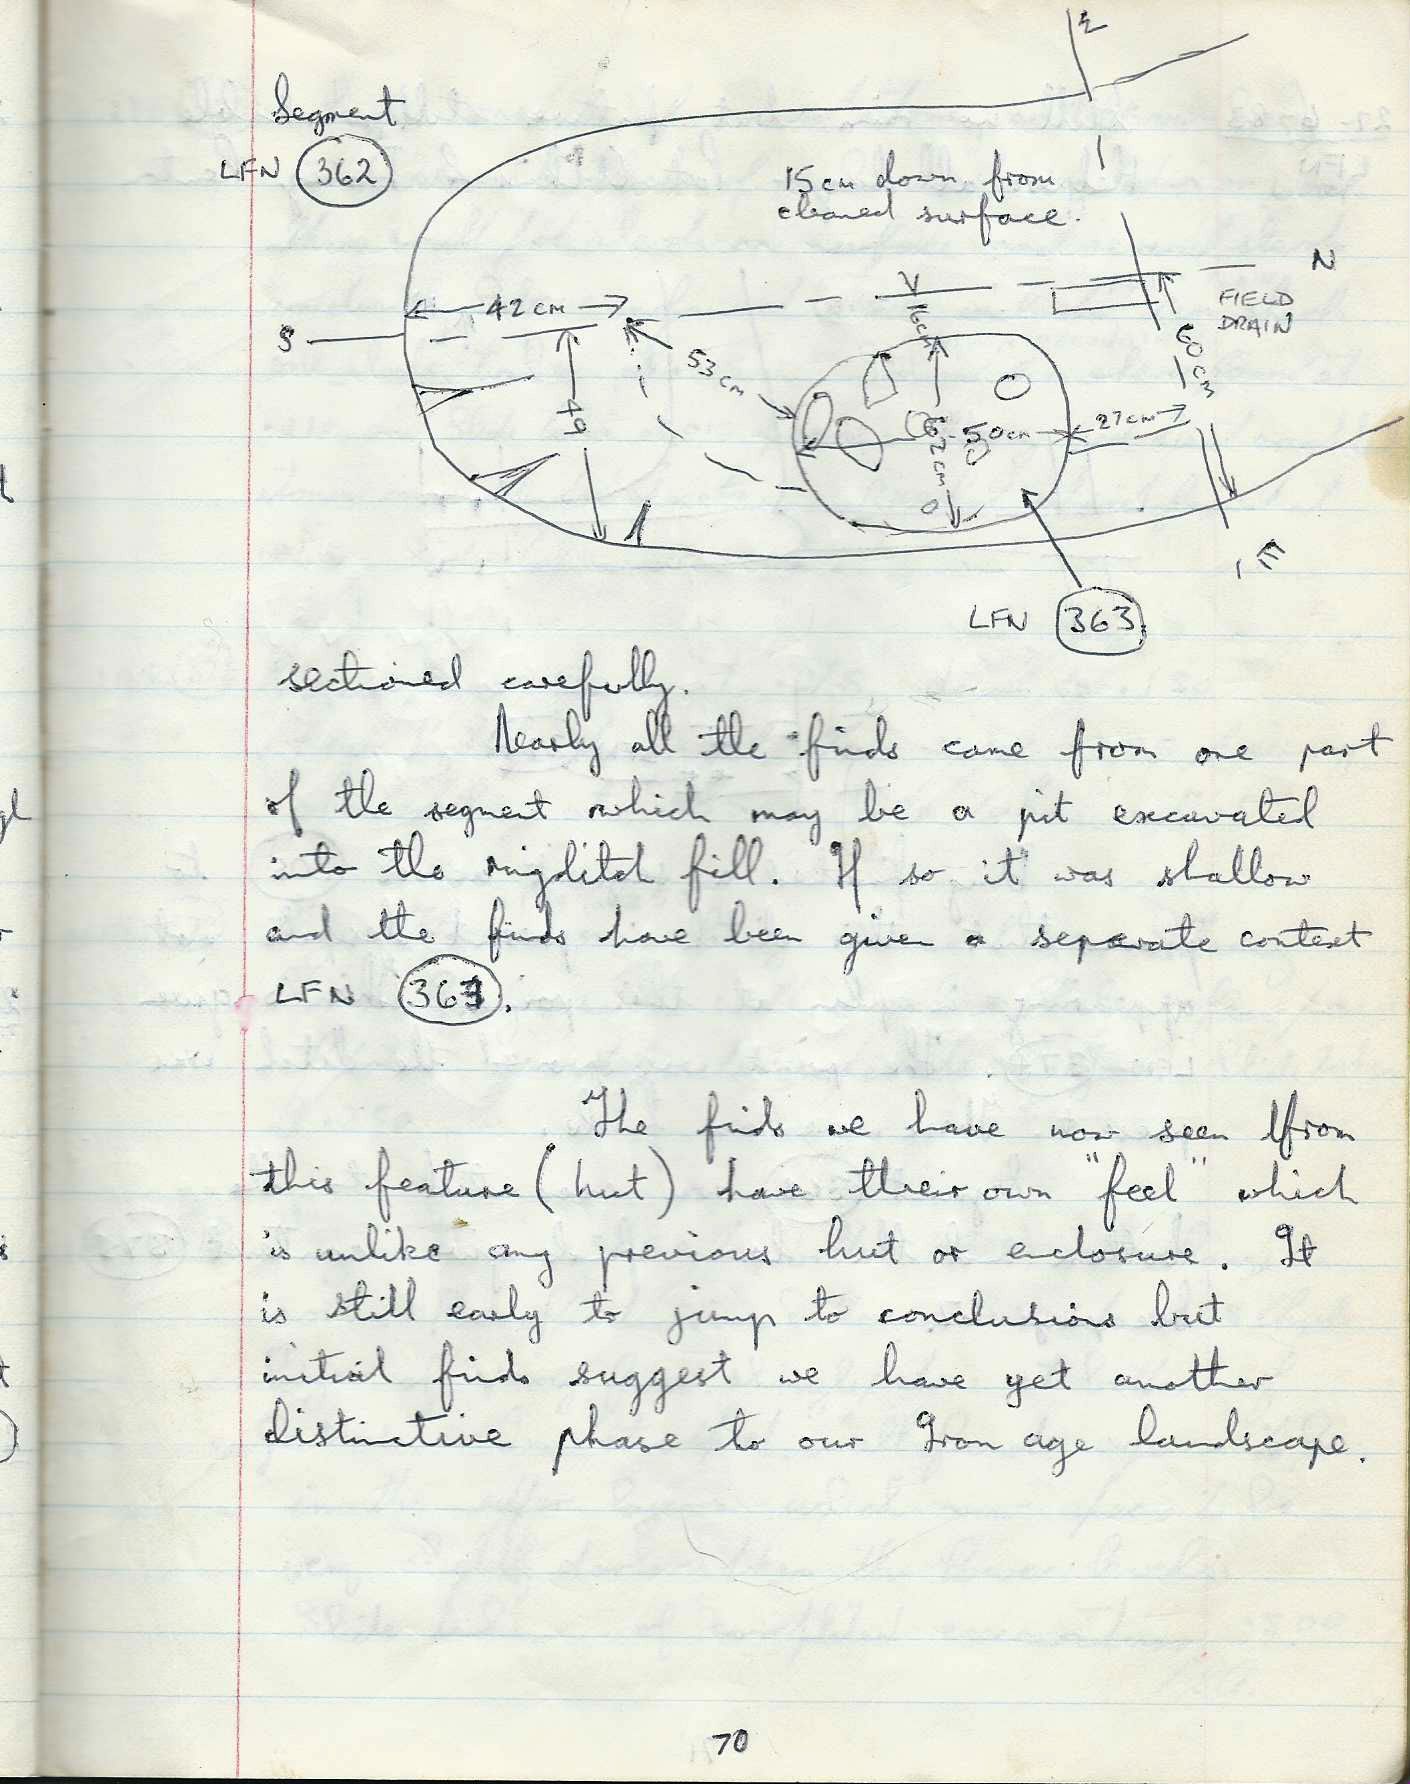 Segment
LFN 362
15cm down from
cleaned surface.
N
FIELD
DRAIN
S
42 cm
16cm
53 cm
60cm
49
62cm
50cm
27cm
E
LFN 363
sectioned carefully.
Nearly all the finds came from one part
of the segment which may be a pit excavated
into the ringditch fill. If so it was shallow
and the finds have been given a separate context
LFN 363.
The finds we have now seen from
this feature (hut) have their own "feel" which
is unlike any previous hut or enclosure. It
is still early to jump to conclusions but
initial finds suggest we have yet another
distinctive phase to our Iron age landscape.
70